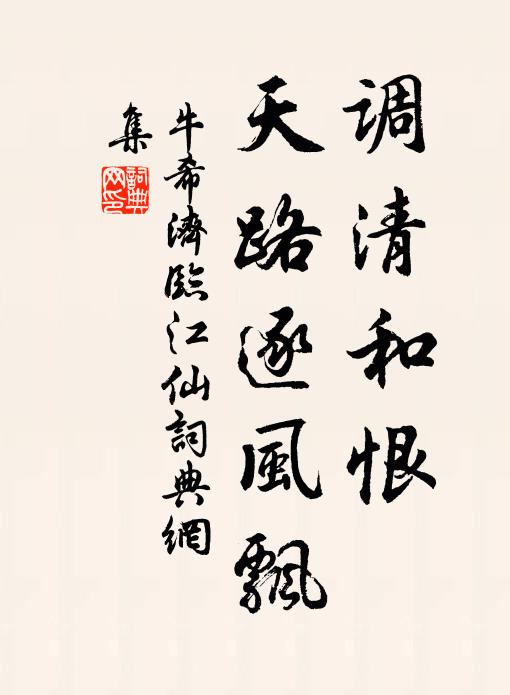 调清和恨
天路逐風飄
牛希濟臨江仙詞典網
集
詞典
网印